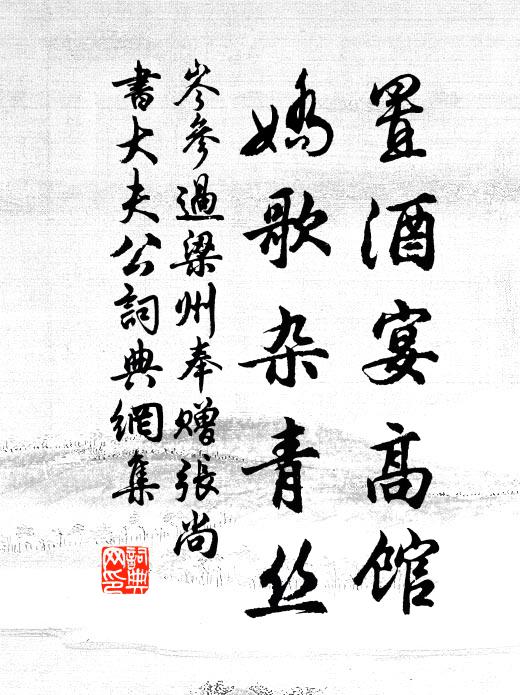 置酒宴高馆
娇歌杂青丝
岑參過梁州奉赠張尚
書大夫公詞典網集
詞典网印